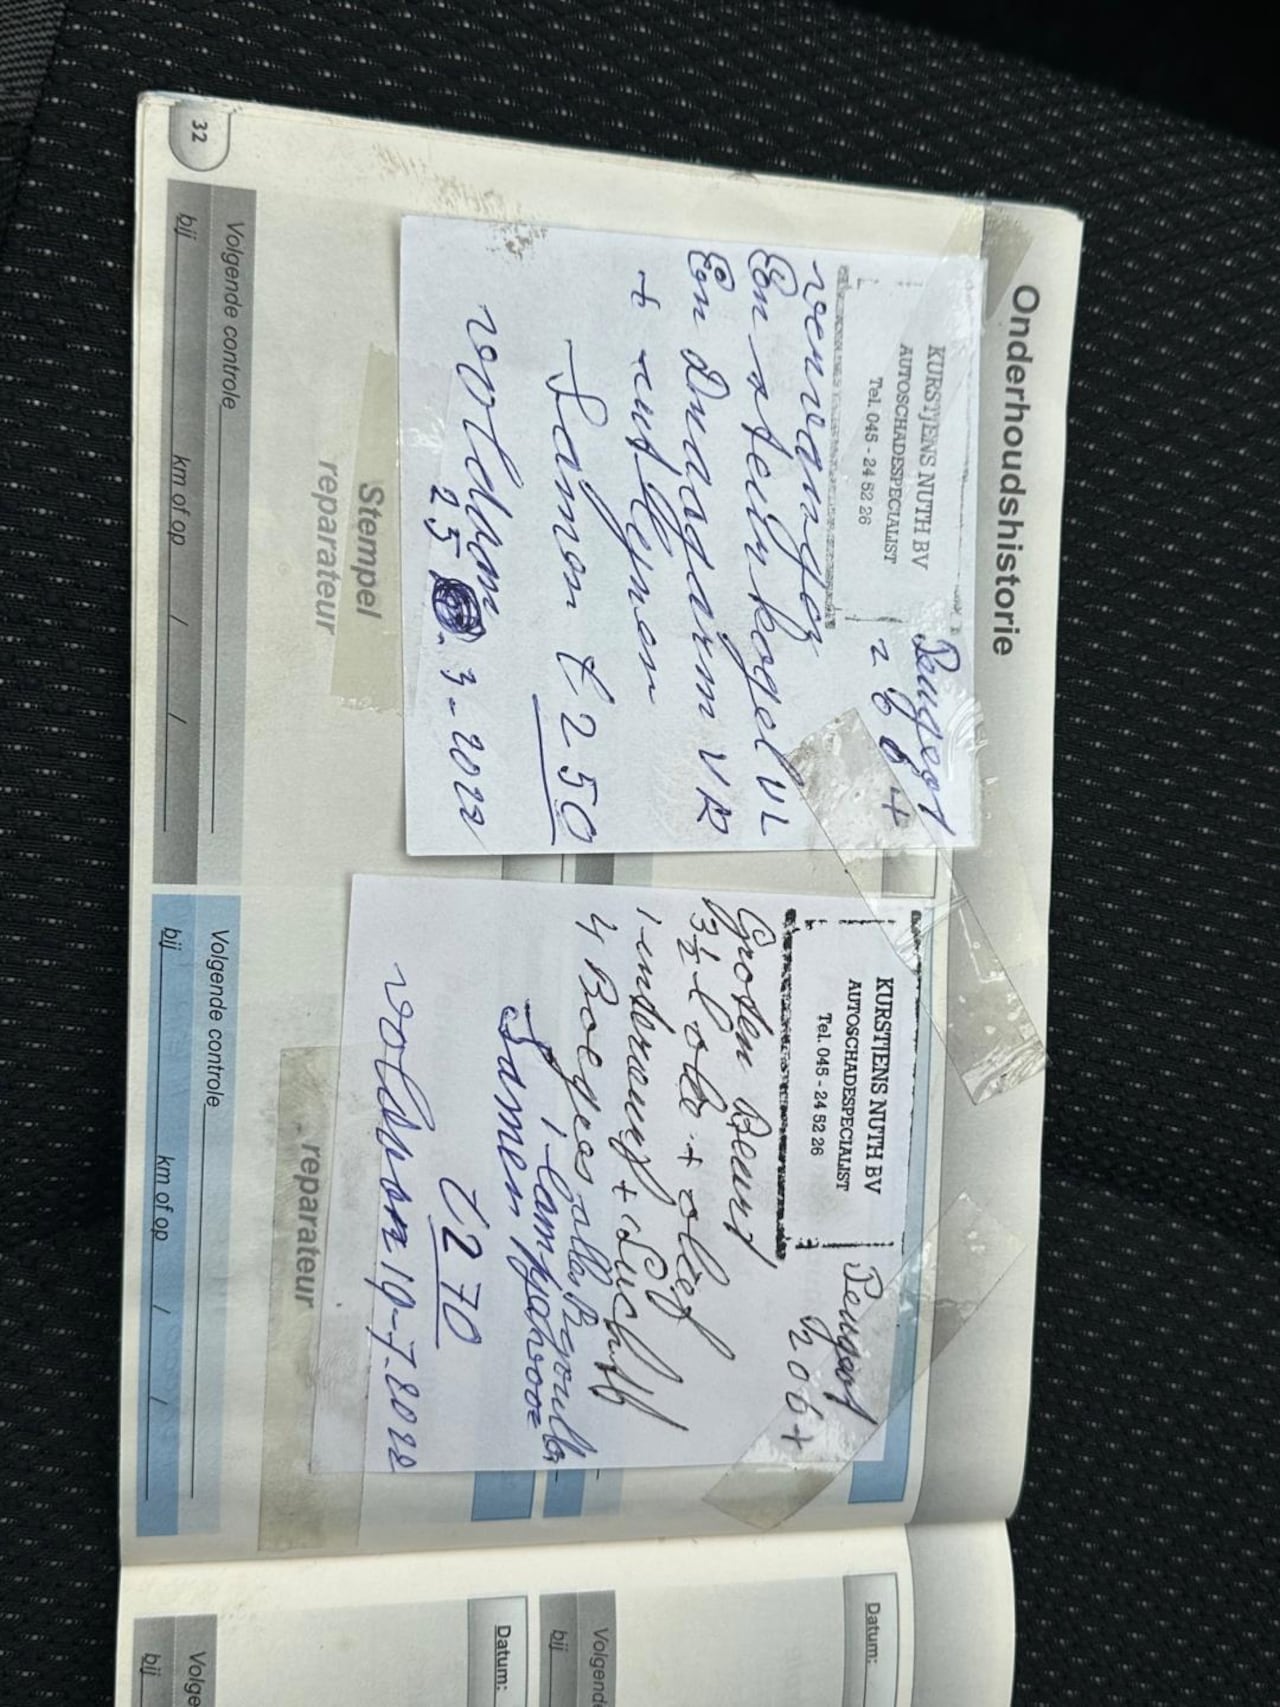 Onderhoudshistorie
KURSTJENS NUTH BV
AUTOSCHADESPECIALIST
Tel. 045 - 24 52 26
Peugeot
206+
vervangen
Een steunkogel VL
Een Draagarm VR
+ uitlijnen
Samen € 250
voldaan
25 - 3 - 2022
KURSTJENS NUTH BV
AUTOSCHADESPECIALIST
Tel. 045 - 24 52 26
Peugeot
206+
Groten Beurt
3 1/2 l olie + olief
1 + Luchtf
4 Boegies
1 Lampje voor
Samen
€ 270
voldaan 19-7-2022
Stempel
reparateur
reparateur
Volgende controle
bij km of op / /
Volgende controle
bij km of op / /
32
Datum:
Volgende
bij
Datum:
Volge
bij